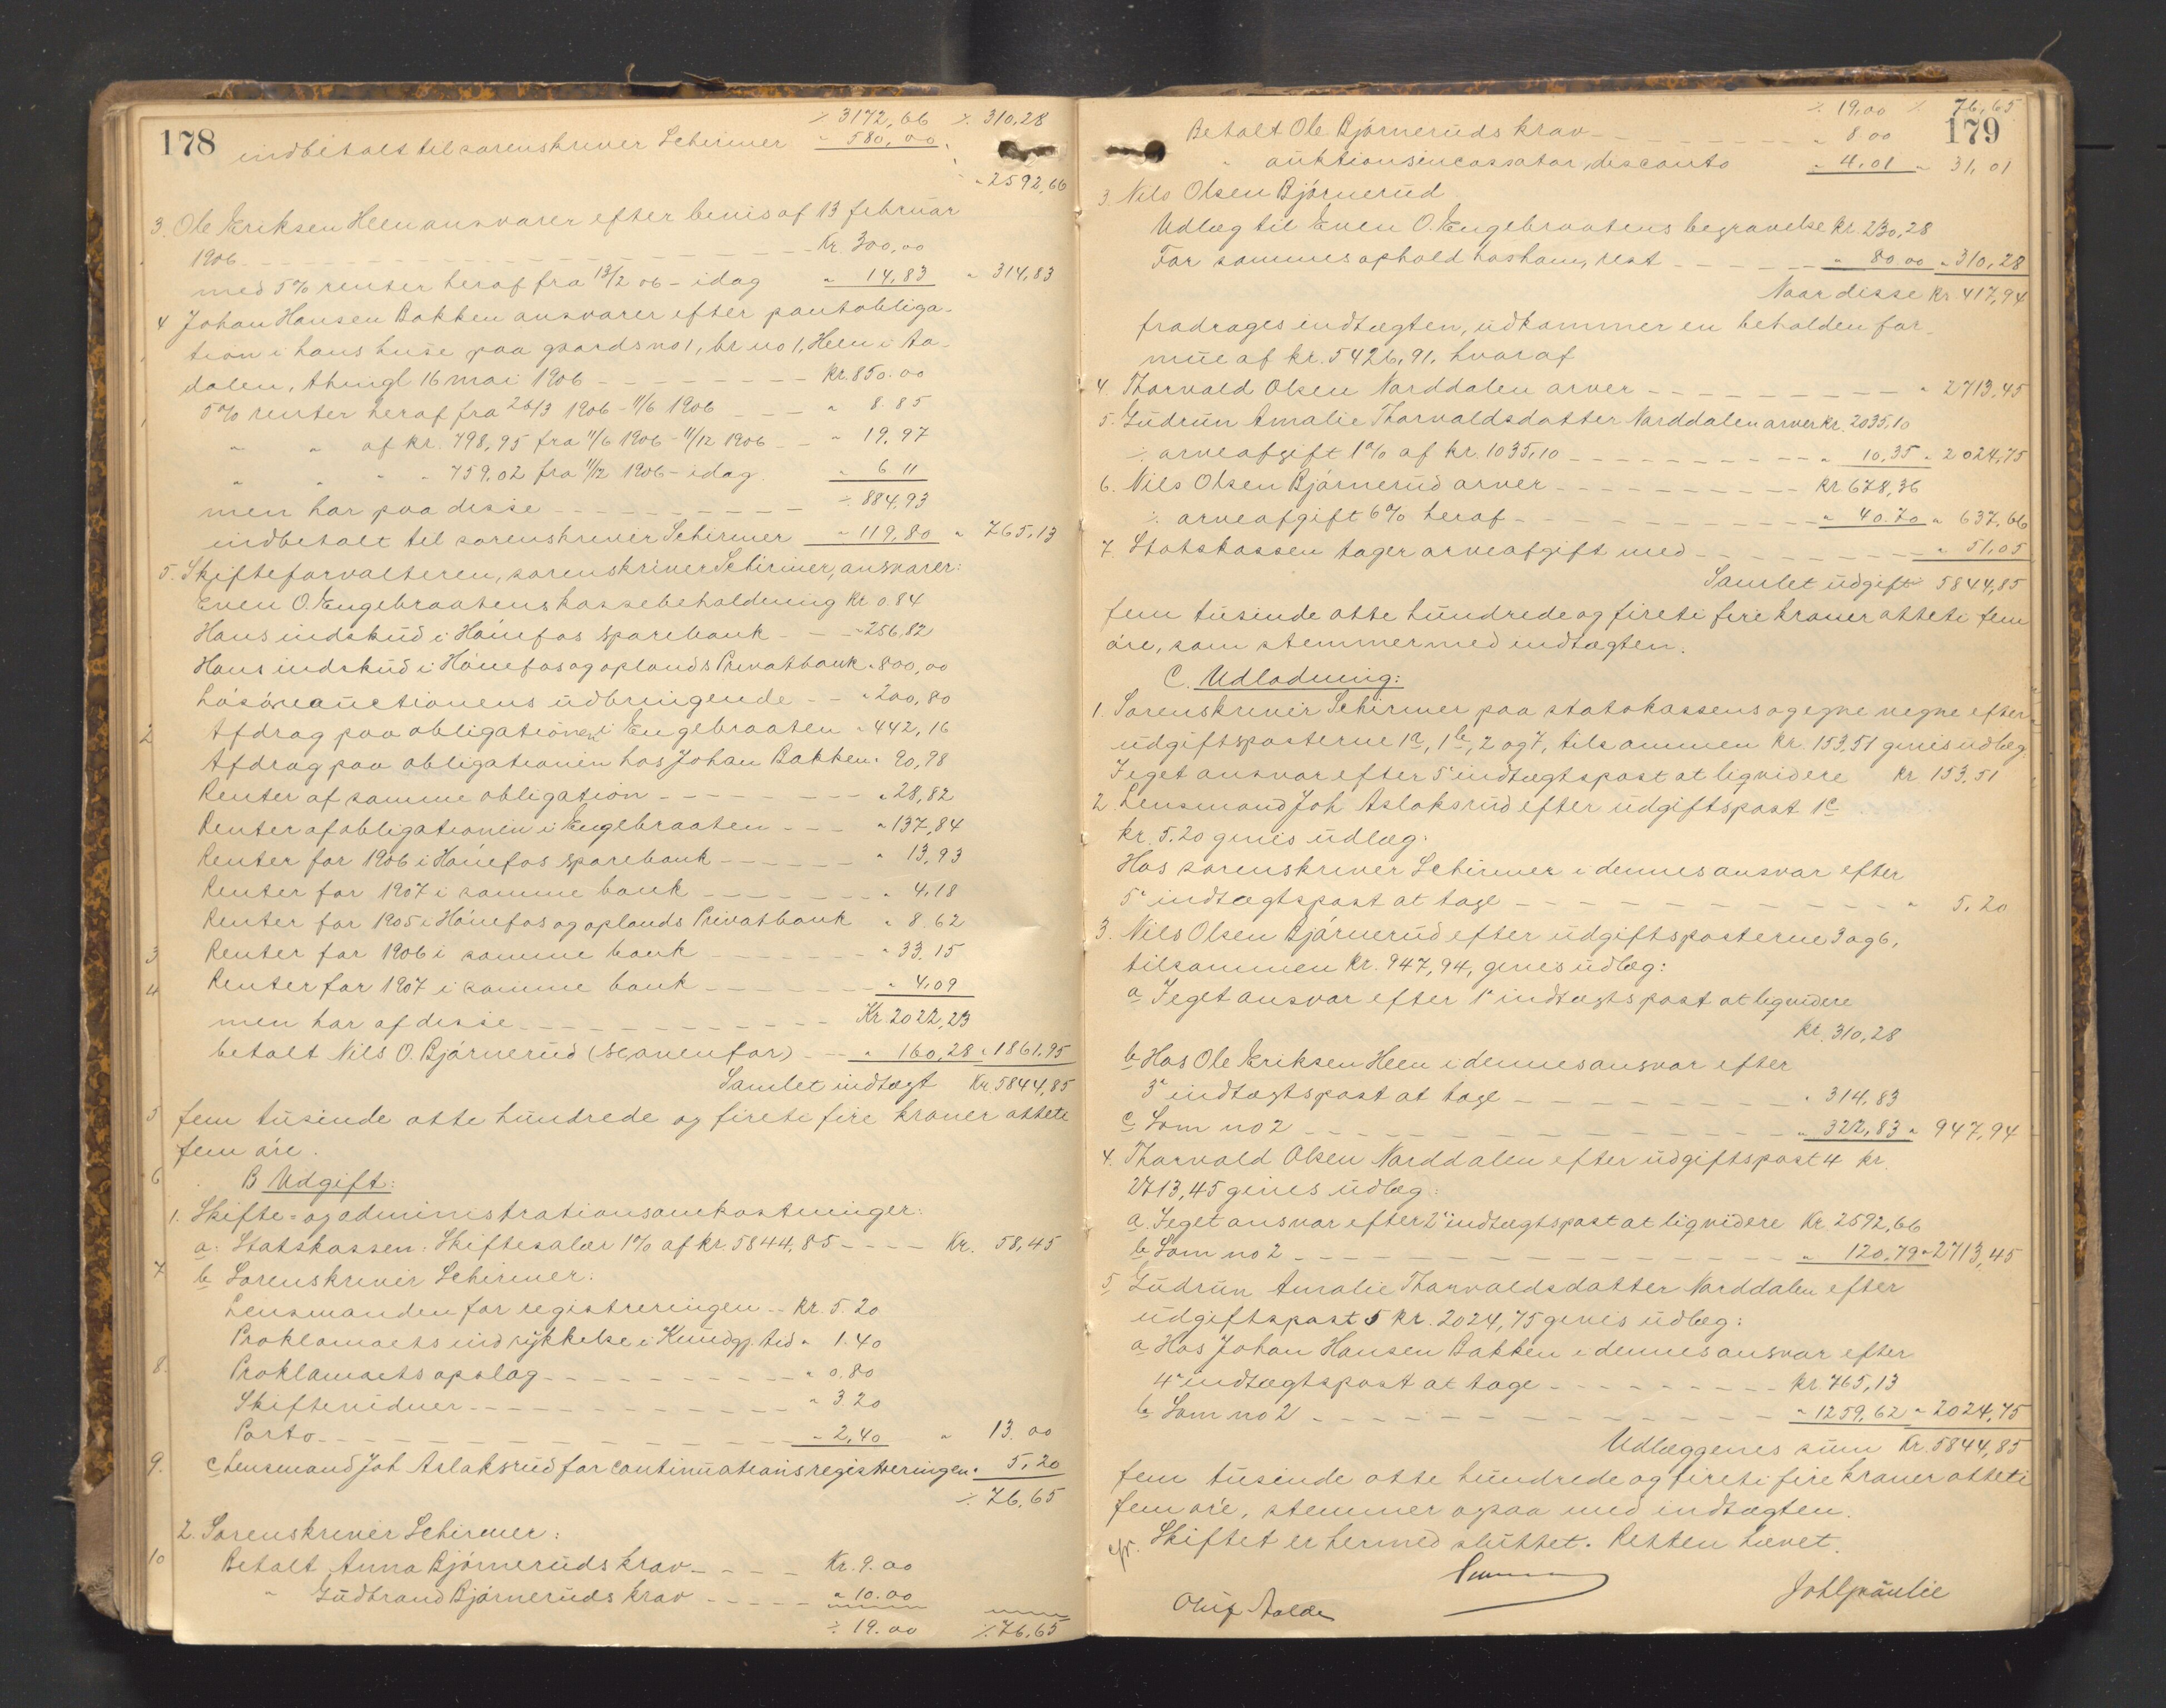 178
⁒ 3172,66 ⁒ 310,28
indbetalt til sorenskriver Schirmer " 580,00
" 2592,66
3. Ole Eriksen Heen ansvarer efter bevis af 13 februar
1906 Kr. 300,00
med 5% renter heraf fra 13/2 06 - idag " 14,83 " 314,83
4 Johan Hansen Bakken ansvarer efter pantobliga-
tion i hans huse paa gaards no 1, br. no 1, Heen i Aa-
dalen, thingl 16 mai 1906 Kr. 850.00
5% renter heraf fra 26/3 1906 - 11/6 1906 " 8.85
" " af kr. 798,95 fra 11/6 1906 - 11/12 1906 " 19,97
" " " " 759,02 fra 11/12 1906 - idag " 6 11
⁒ 884,93
men har paa disse
indbetalt til sorenskriver Schirmer " 119,80 " 765,13
5. Skifteforvalteren, sorenskriver Schirmer, ansvarer:
Even O. Engebraatens kassebeholdning Kr 0.84
Hans indskud i Hönefos sparebank " 256,82
Hans indskud i Hönefos og oplands Privatbank " 800,00
Lösöreauctionens udbringende " 200,80
2 Afdrag paa obligationen i Engebraaten " 442,16
Afdrag paa obligationen hos Johan Bakken " 90,98
Renter af samme obligation " 28,82
Renter af obligationen i Engebraaten " 137,84
Renter for 1906 i Hönefos sparebank " 13,93
Renter for 1907 i samme bank " 4,18
Renter for 1905 i Hönefos og oplands Privatbank " 8.62
3 Renter for 1906 i samme bank " 33,15
4 Renter for 1907 i samme bank " 4,09
Kr 2022,23
men har af disse
betalt Nils O. Björnerud (se ovenfor) " 160,28 " 1861,95
Samlet indtægt Kr. 5844,85
5 fem tusinde otte hundrede og fireti fire kroner otteti
fem öre.
6 B Udgift:
1. Skifte- og administrationsomkostninger:
a. Statskassen: Skiftesalær 1% af kr. 5844,85 Kr. 58,45
7 b Sorenskriver Schirmer:
Lensmanden for registreringen Kr. 5.20
Proklamaets indrykkelse i Kundgj. tid " 1.40
8. Proklamaets opslag " 0.80
Skiftevidner " 3.20
Porto " 2,40 " 13.00
9. c Lensmand Joh Aslaksrud for continuationsregistreringen " 5,20
⁒ 76,65
2. Sorenskriver Schirmer:
10 Betalt Anna Björneruds krav Kr. 9.00
" Gudbrand Björneruds krav " 10.00
⁒ 19.00 ⁒ 76,65
179
⁒ 19,00 ⁒ 76,65
Betalt Ole Björneruds krav " 8.00
" auktionsincassator, disconto " 4.01 " 31,01
3. Nils Olsen Björnerud
Udlæg til Even O. Engebraatens begravelse kr. 230,28
For sammes ophold hos ham, rest " 80.00 " 310,28
Naar disse Kr 417,94
fradrages indtægten, udkommer en beholden for-
mue af kr. 5426,91, hvoraf
4. Thorvald Olsen Norddalen arver " 2713,45
5. Gudrun Amalie Thorvaldsdatter Norddalen arver kr. 2035,10
⁒ arveafgift 1% af kr. 1035,10 " 10,35 " 2024,75
6. Nils Olsen Björnerud arver Kr 678,36
⁒ arveafgift 6% heraf " 40.70 " 637,66
7. Statskassen tager arveafgift med " 51,05
Samlet udgift 5844,85
fem tusinde otte hundrede og fireti fire kroner otteti fem
öre, som stemmer med indtægten.
C. Udlodning:
1. Sorenskriver Schirmer paa statskassens og egne vegne efter
udgiftsposterne 1a, 1b, 2 og 7, tilsammen Kr. 153,51 gives udlæg:
I eget ansvar efter 5' indtægtspost at liqvidere Kr 153,51
2. Lensmand Joh Aslaksrud efter udgiftspost 1c
kr. 5.20 gives udlæg:
Hos sorenskriver Schirmer i dennes ansvar efter
5' indtægtspost at tage " 5,20
3. Nils Olsen Björnerud efter udgiftsposterne 3 og 6,
tilsammen Kr. 947,94, gives udlæg:
a I eget ansvar efter 1' indtægtspost at liqvidere
kr. 310,28
b Hos Ole Eriksen Heen i dennes ansvar efter
3' indtægtspost at tage " 314,83
c Som no 2 " 322,83 " 947,94
4. Thorvald Olsen Norddalen efter udgiftspost 4 kr.
2713,45 gives udlæg:
a. I eget ansvar efter 2' indtægtspost at liqvidere Kr. 2592,66
b Som no 2 " 120,79 " 2713,45
5 Gudrun Amalie Thorvaldsdatter Norddalen efter
udgiftspost 5 kr. 2024,75 gives udlæg:
a Hos Johan Hansen Bakken i dennes ansvar efter
4' indtægtspost at tage kr. 765,13
b Som no 2 " 1259,62 " 2024,75
Udlæggenes sum Kr. 5844,85
fem tusinde otte hundrede og fireti fire kroner otteti
fem öre, stemmer ogsaa med indtægten.
Skiftet er hermed sluttet. Retten hævet.